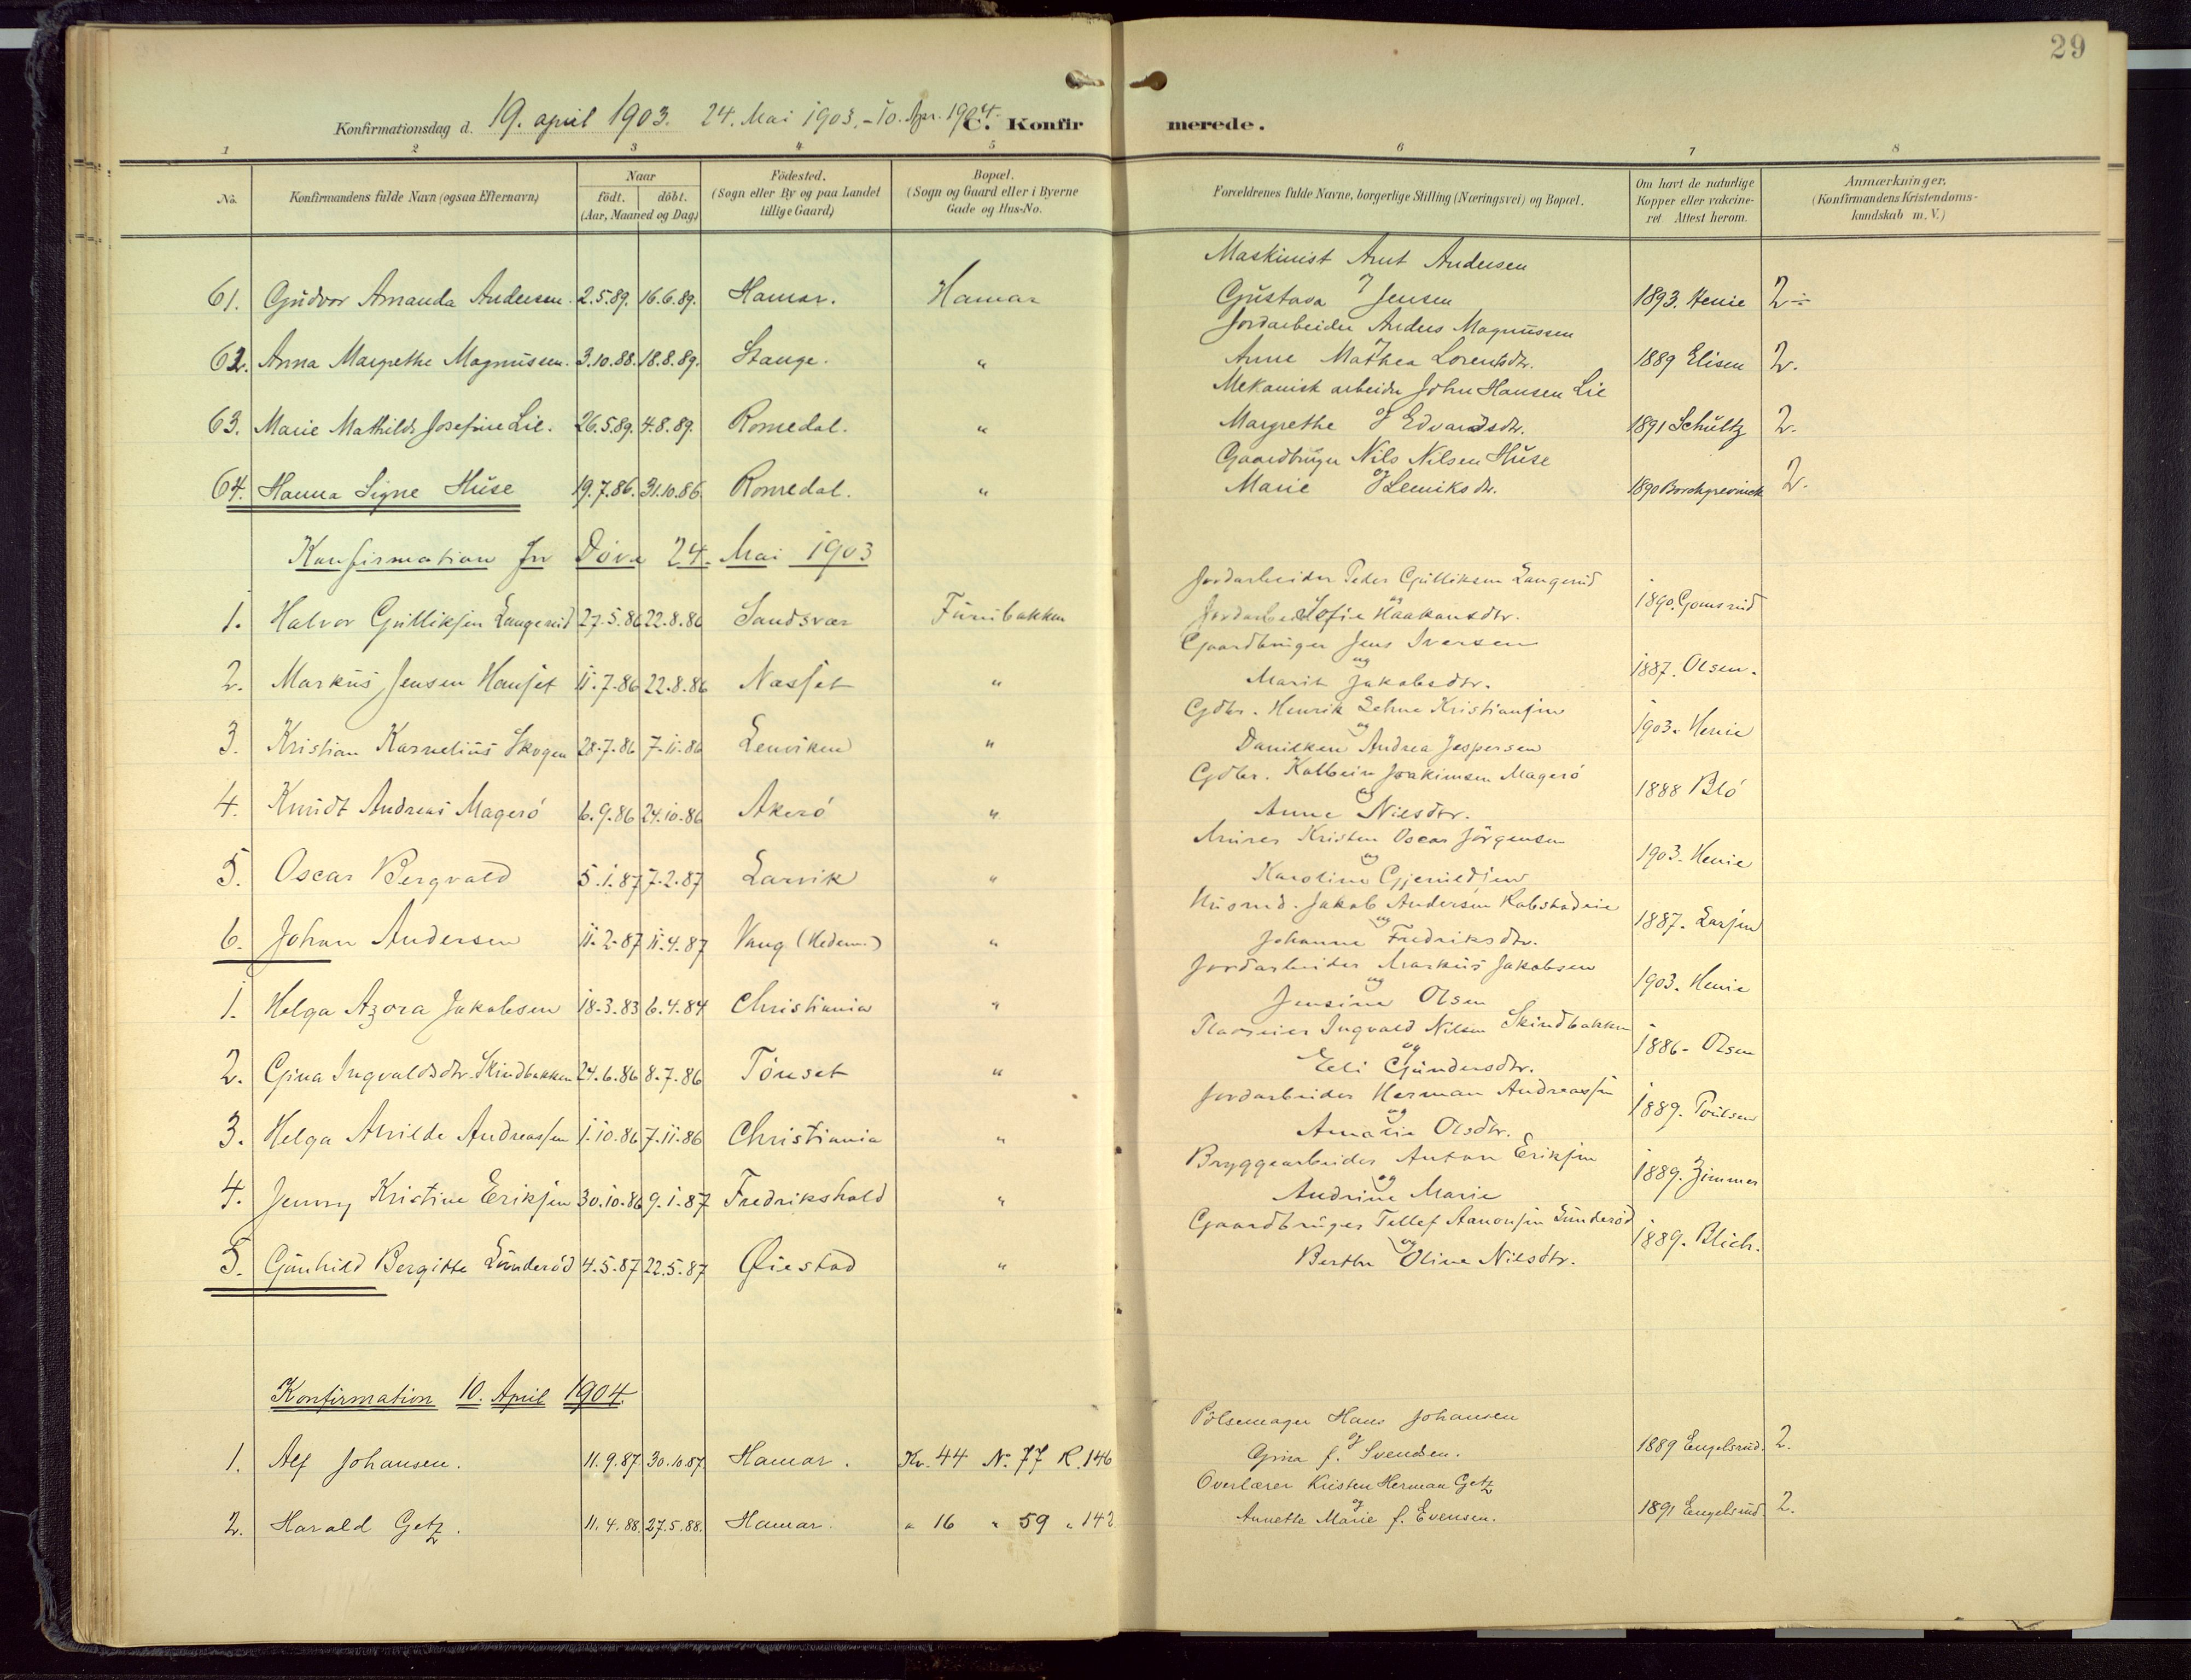 29
Konfirmationsdag d. 19. april 1903. 24. Mai 1903. - 10. Apr. 1904. C. Konfirmerede.
1 2 3 4 5 6 7 8
No. Konfirmandens fulde Navn (ogsaa Efternavn) Naar födt. döbt. (Aar, Maaned og Dag) Födested. (Sogn eller By og paa Landet tillige Gaard) Bopæl. (Sogn og Gaard eller i Byerne Gade og Hus-No. Forældrenes fulde Navne, borgerlige Stilling (Næringsvei) og Bopæl. Om havt de naturlige Kopper eller vakcineret. Attest herom. Anmærkninger. (Konfirmandens Kristendomskundskab m. V.)
Maskinist Arnt Andersen
61. Gudvor Amanda Andersen. 2.5.89. 16.6.89. Hamar. Hamar og Gustava Jensen 1893. Henie 2÷
Jordarbeider Anders Magnussen
62. Anna Margrethe Magnussen. 3.10.88. 18.8.89. Stange. " og Anne Mathea Lorentsdtr. 1889 Elisen 2.
Mekanisk arbeider John Hansen Lie
63. Marie Mathilde Josefine Lie. 26.5.89. 4.8.89. Romedal. " Margrethe og Edvardsdtr. 1891 Schultz 2.
Gaardbruger Nils Nilsen Huse
64. Hanna Signe Huse 19.7.86. 31.10.86. Romedal. " Marie og Lemiksdtr. 1890 Borchgrevinck 2.
Konfirmation for Døve 24. Mai 1903
Jordarbeider Peder Gulliksen Langerud
1. Halvor Gulliksen Langerud 27.5.86 22.8.86 Sandsvær Furubakken og Sofie Haakansdtr. 1890. Gomsrud
Gaardbruger Jens Iversen
2. Markus Jensen Hauset 11.7.86 22.8.86 Næsset " og Marit Jakobsdtr. 1887. Olsen.
Gdbr. Henrik Lehne Kristiansen
3. Kristian Kornelius Skogen 28.7.86 7.11.86 Lenviken " og Danikken Andrea Jespersen 1903. Henie
Gdbr. Kolbein Joakimsen Magerö
4. Knudt Andreas Magerö 6.9.86 24.10.86 Akerö " og Anne Nilsdtr. 1888 Blö
Murer Kristen Oscar Jörgensen
5. Oscar Bergvald 5.1.87 7.2.87 Larvik " og Karoline 1903. Henie
Husmd. Jakob Andersen Kabstadeie
6. Johan Andersen 11.2.87 11.4.87 Vang (Hedem.) " og Johanne Fredriksdtr. 1887. Larsen
Jordarbeider Markus Jakobsen
1. Helga Azora Jakobsen 18.3.83 6.4.84 Christiania " og Jensine Olsen 1903. Henie
Pladseier Ingvald Nilsen Skindbakken
2. Gina Ingvaldsdtr. Skindbakken 24.6.86 8.7.86 Tönset " og Eli Gundersdtr. 1886 - Olsen
Jordarbeider Herman Andreassen
3. Helga Alvilde Andreassen 1.10.86 7.11.86 Christiania " og Amalie Olsdtr. 1889. Poulsen
Bryggearbeider Anton Eriksen
4. Jenny Kristine Eriksen 30.10.86 9.1.87 Fredrikshald " og Andrine Marie 1889. Zimmer
Gaardbruger Tellef Aanonsen Lunderöd
5. Gunhild Bergitte Lunderöd 4.5.87 22.5.87 Øiestad " og Berthe Oline Nilsdtr. 1889. Blich.
Konfirmation 10. April 1904.
Pölsemager Hans Johansen
1. Alf Johansen. 11.9.87 30.10.87. Hamar. Kv. 44 No. 77 R. 146 og Gina f. Svendsen. 1889 Engelsrud. 2.
Overlærer Kristen Herman Getz
2. Harald Getz. 11.4.88. 27.5.88. Hamar. " 16 " 59 " 142 og Annette Marie f. Evensen. 1891 Engelsrud. 2.